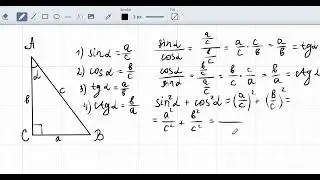 A
α
b
c
C
a
B
1) sinα = a/c
2) cosα = b/c
3) tgα = a/b
4) ctgα = b/a
sinα/cosα = (a/c)/(b/c) = a/c · c/b = a/b = tgα
cosα/sinα = (b/c)/(a/c) = b/c · c/a = b/a = ctgα
sin²α + cos²α = (a/c)² + (b/c)² =
= a²/c² + b²/c² =